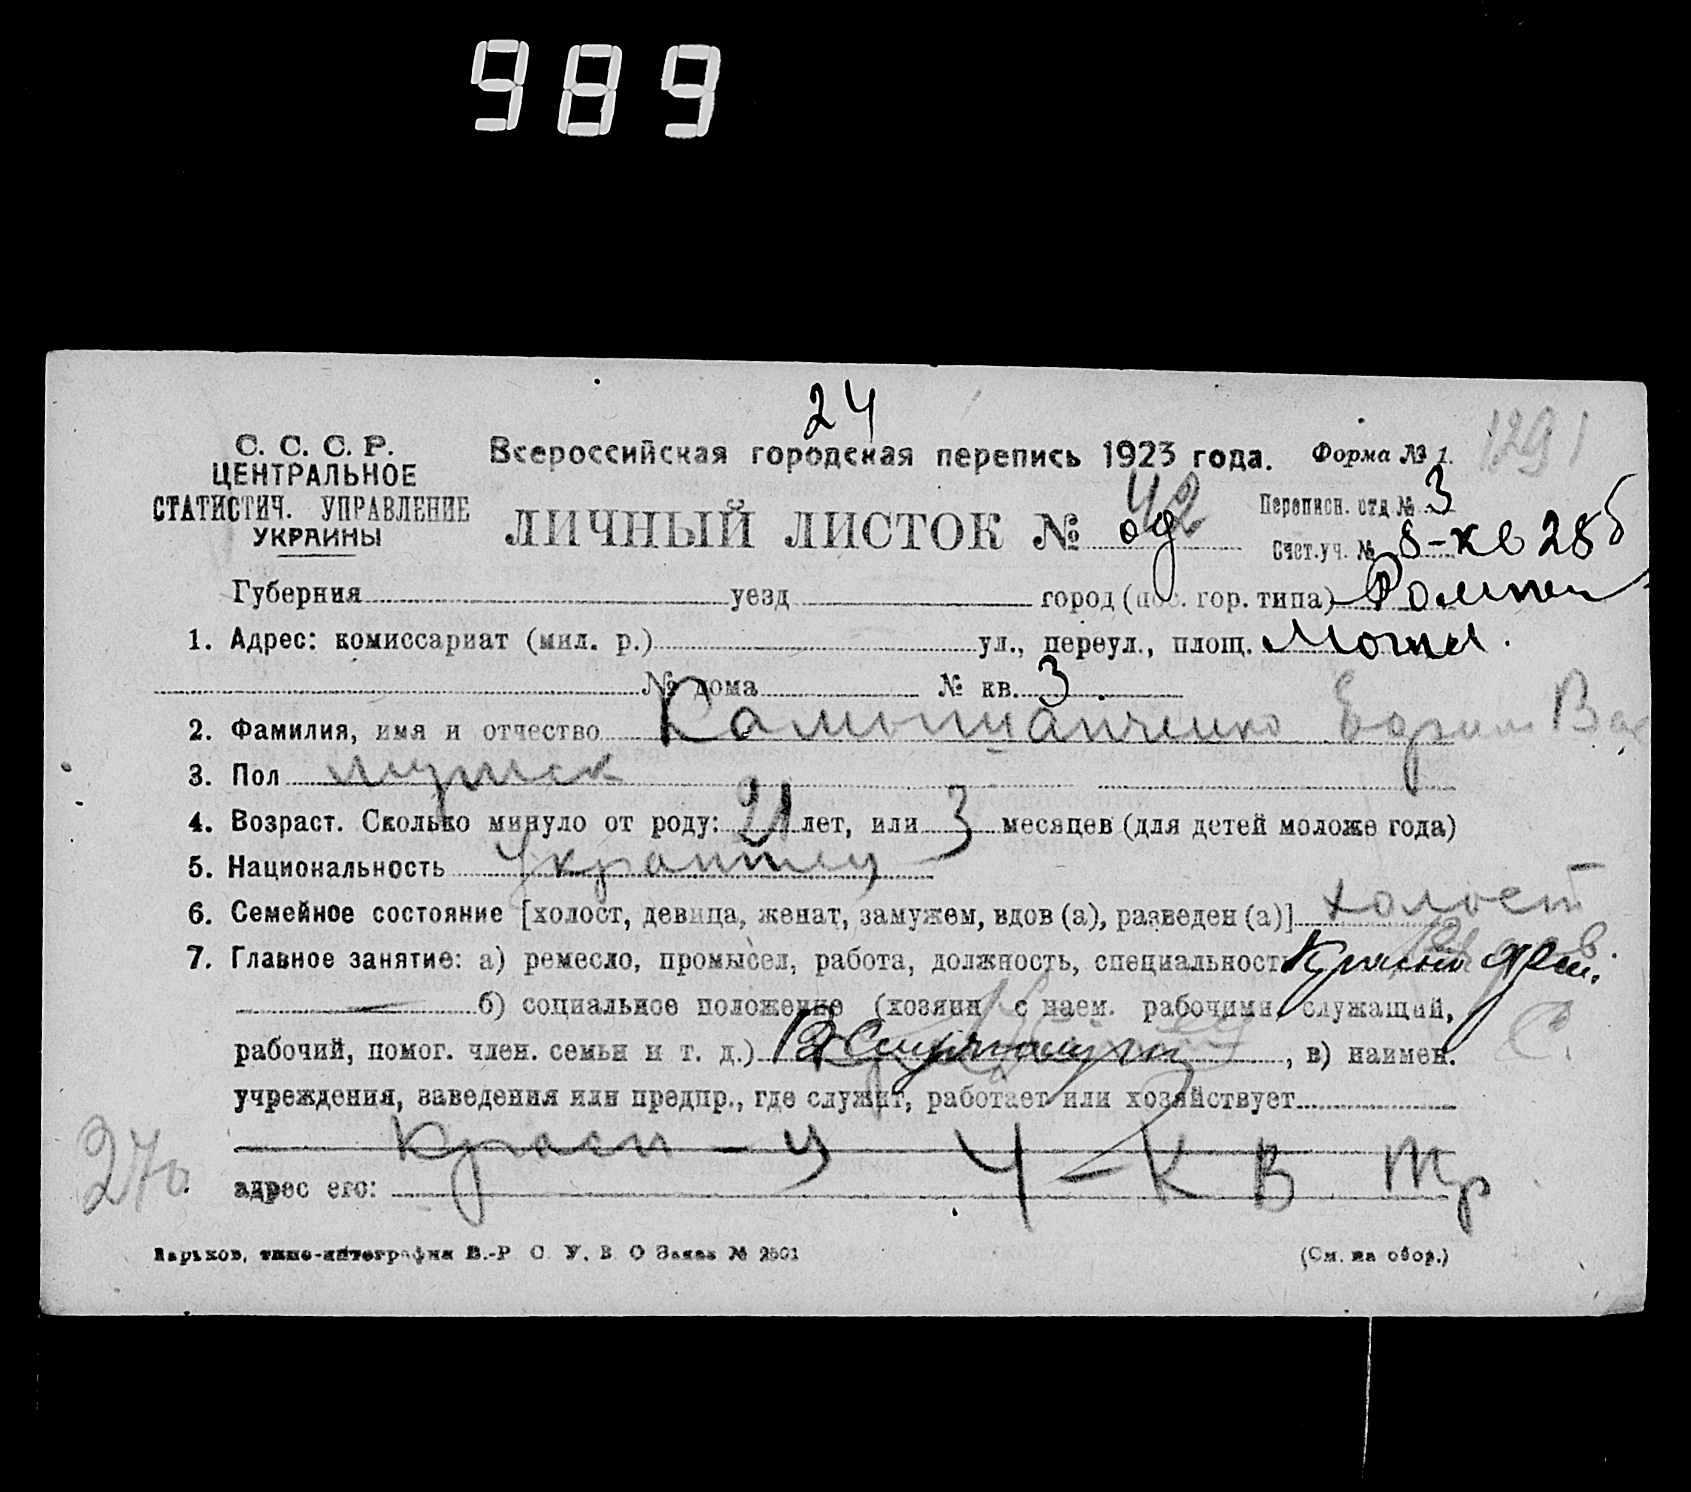 989
24
1291
С. С. С. Р.
ЦЕНТРАЛЬНОЕ
СТАТИСТИЧ. УПРАВЛЕНИЕ
УКРАИНЫ
Всероссийская городская перепись 1923 года. Форма № 1.
ЛИЧНЫЙ ЛИСТОК № 42
Переписн. отд № 3
Счет.уч. № 8-кв 28б
Губерния уезд город (пос. гор. типа) Ромны
1. Адрес: комиссариат (мил. р.) ул., переул., площ.
№ дома № кв. 3
2. Фамилия, имя и отчество Вас
3. Пол мужск
4. Возраст. Сколько минуло от роду: 21 лет, или 3 месяцев (для детей моложе года)
5. Национальность Украинец
6. Семейное состояние [холост, девица, женат, замужем, вдов (а), разведен (а)] холост
7. Главное занятие: а) ремесло, промысел, работа, должность, специальность
б) социальное положение (хозяин с наем. рабочими, служащий,
рабочий, помог. член. семьи и т. д.) , в) наимен.
учреждения, заведения или предпр., где служит, работает или хозяйствует
4-К В
270
адрес его:
Харьков, типо-литография В.-Р С. У. В. О Заказ № 2501 (См. на обор.)